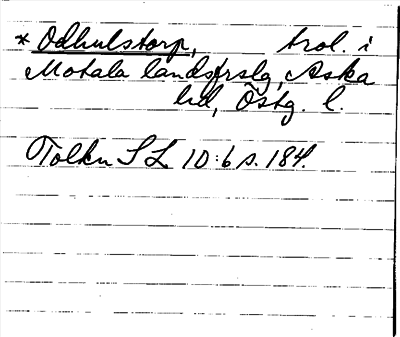 * Odhulstorp, trol. i
Motala landsfrslg, Aska
hd, Östg. l.
Tolkn SL 10:6 s. 184.